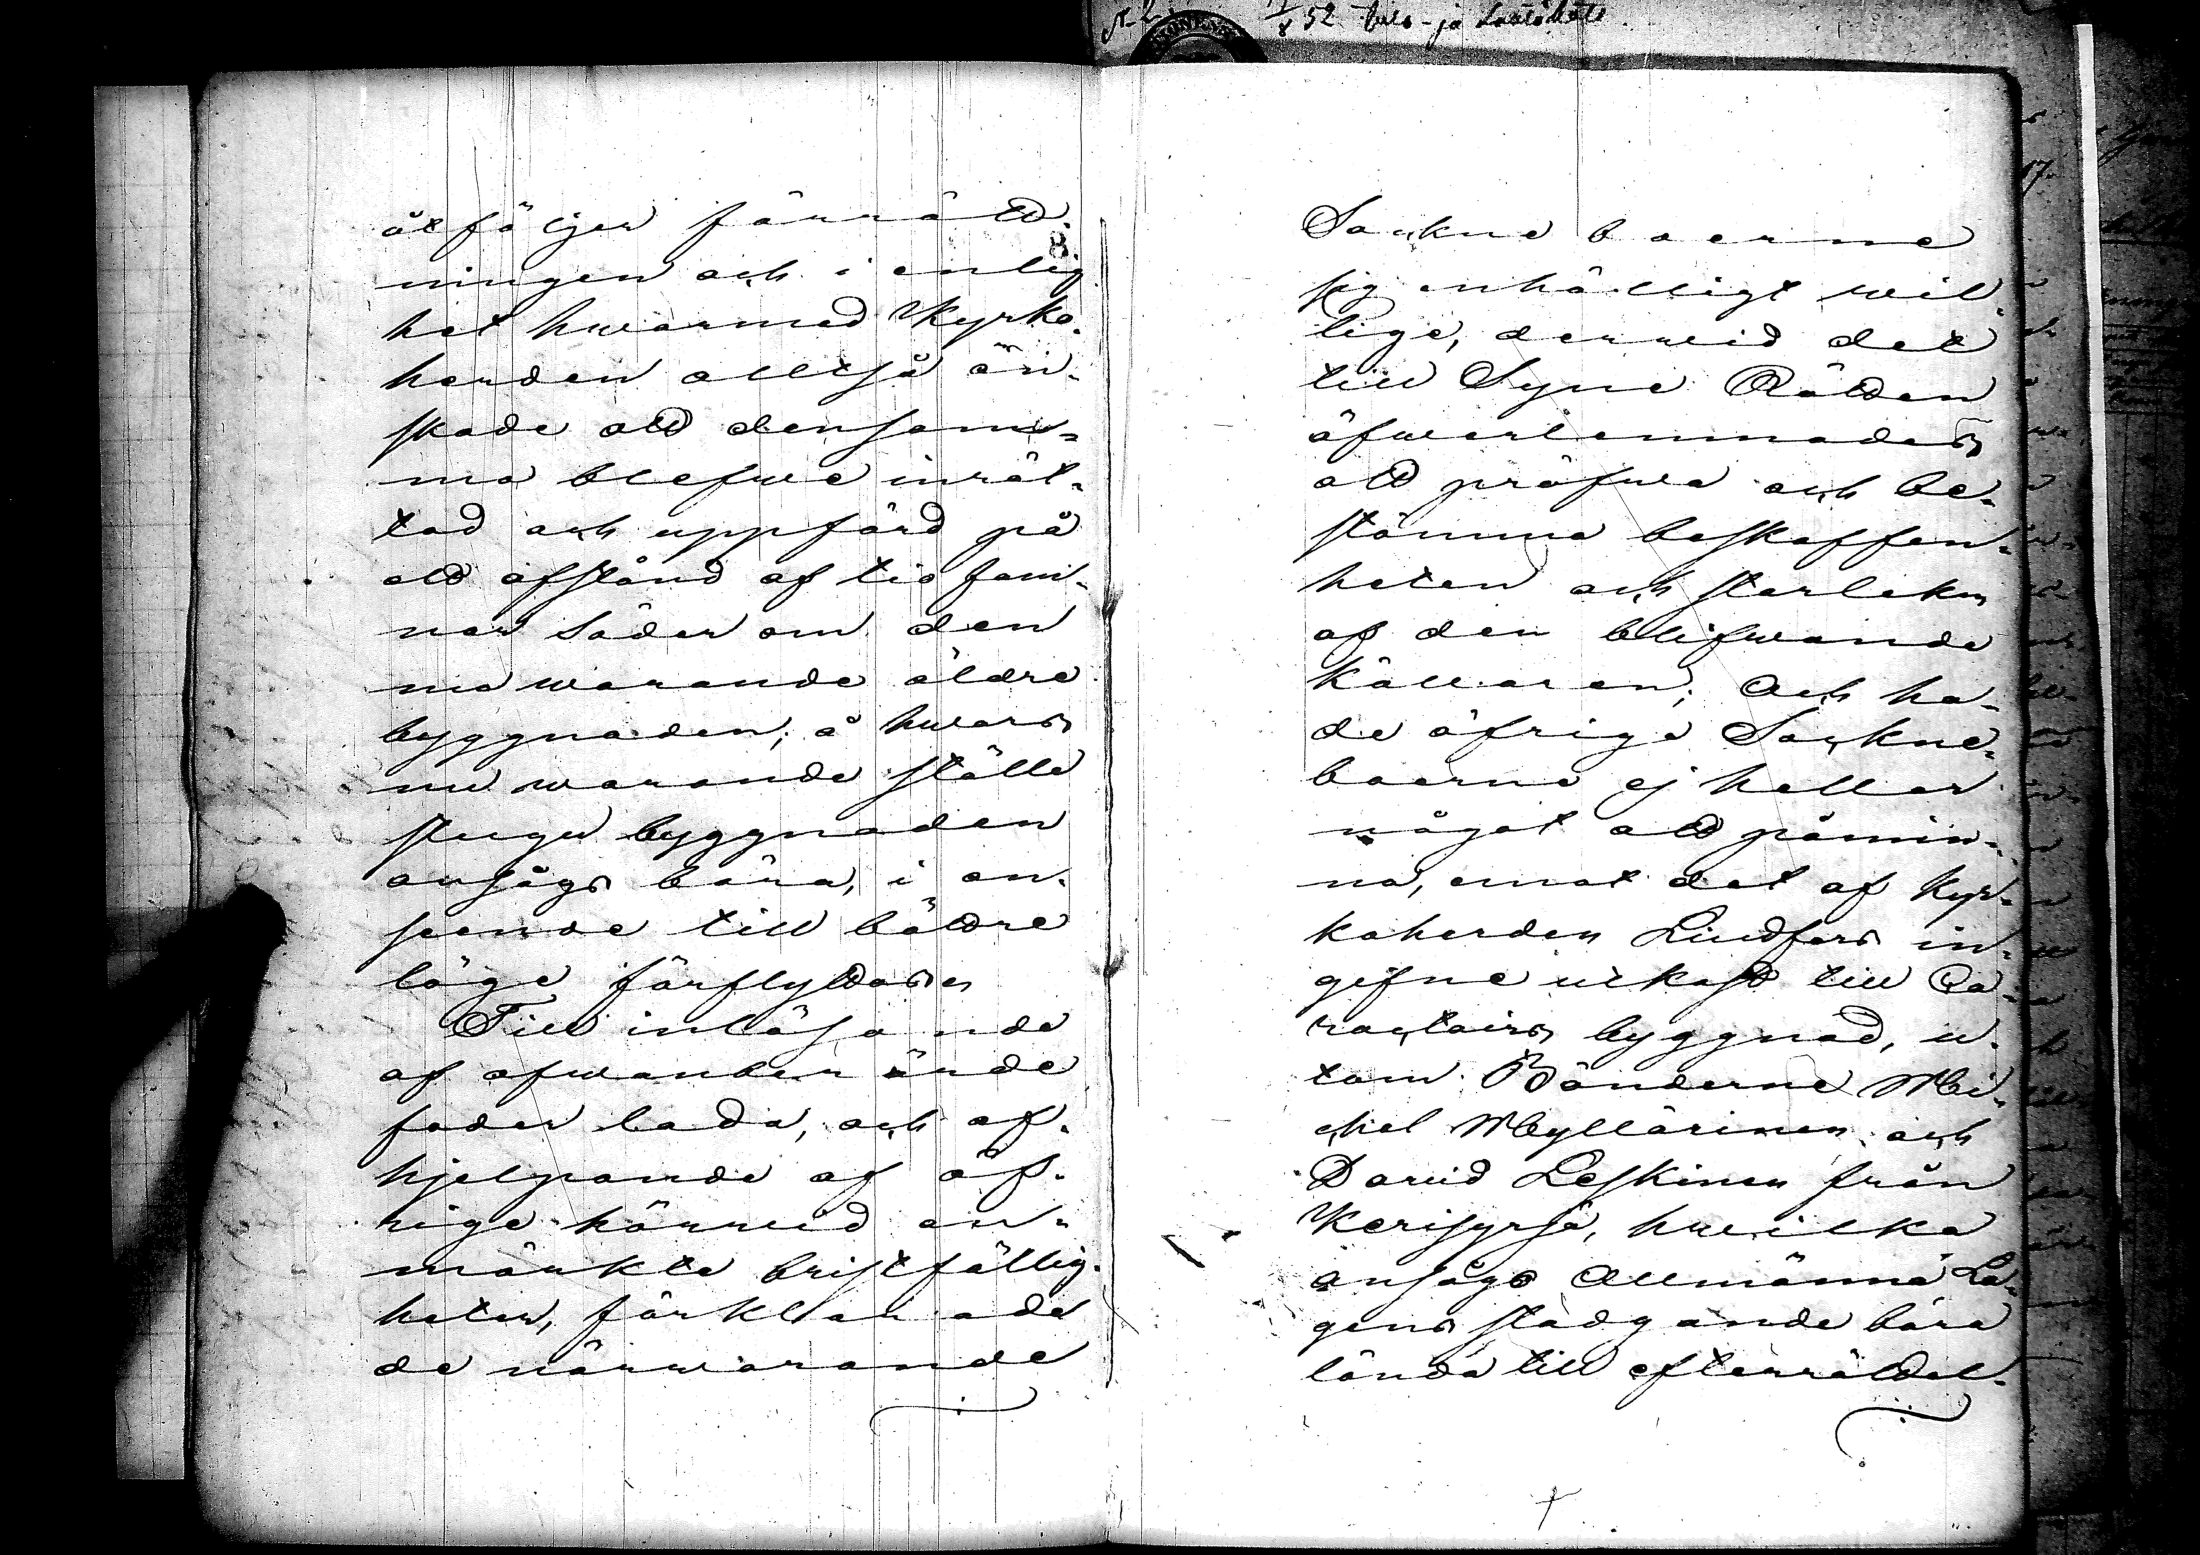 N. 2.
52 Tulo- ja
åtföljer förrätt-
8.
ningen och i enlig
het hwarmed Kyrko-
herden alltså ön-
skade att densam-
ma blefwe inrät-
tad och uppförd på
ett afstånd af tio fam-
nar Söder om den
nu warande äldre
byggnaden; å hwars
nu warande ställe
stugu byggnaden
ansågs böra, i an-
seende till bättre
läge förflyttas.
Till inlösande
af ofwanberörde
foder lada, och af-
hjelpande af öf-
rige härwid an-
märkte bristfällig-
heter, förklarade
de närwarande
Sockne boerne
sig enhälligt wil-
lige, derwid det
till Syne Rätten
öfwerlemnades
att pröfwa och be-
stämma beskaffen-
heten och storleken
af den blifwande
Källaren; Och ha-
de öfrige Sockne-
boerne ej heller
något att påmin-
na, emot det af Kyr-
koherden Lindfors in-
gifne utkast till Ca-
racteirs byggnad, u-
tom Bönderne Mi-
chel Myllärinen och
David Leskinen från
Kerisyrjä, hwilka
ansågo Allmänna La-
gens stadgande böra
lända till efterrättel-